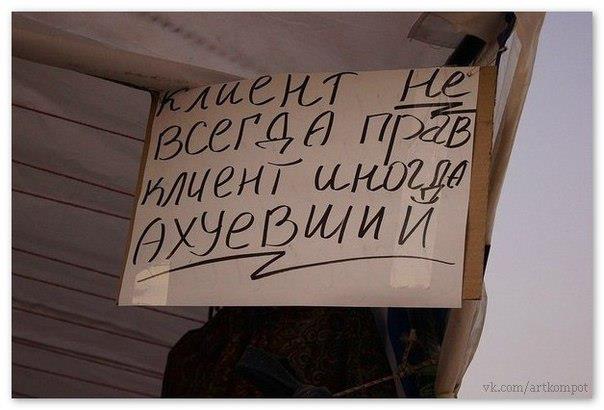 клиент не
всегда прав
клиент иногда
АХУЕВШИЙ
vk.com/artkompot